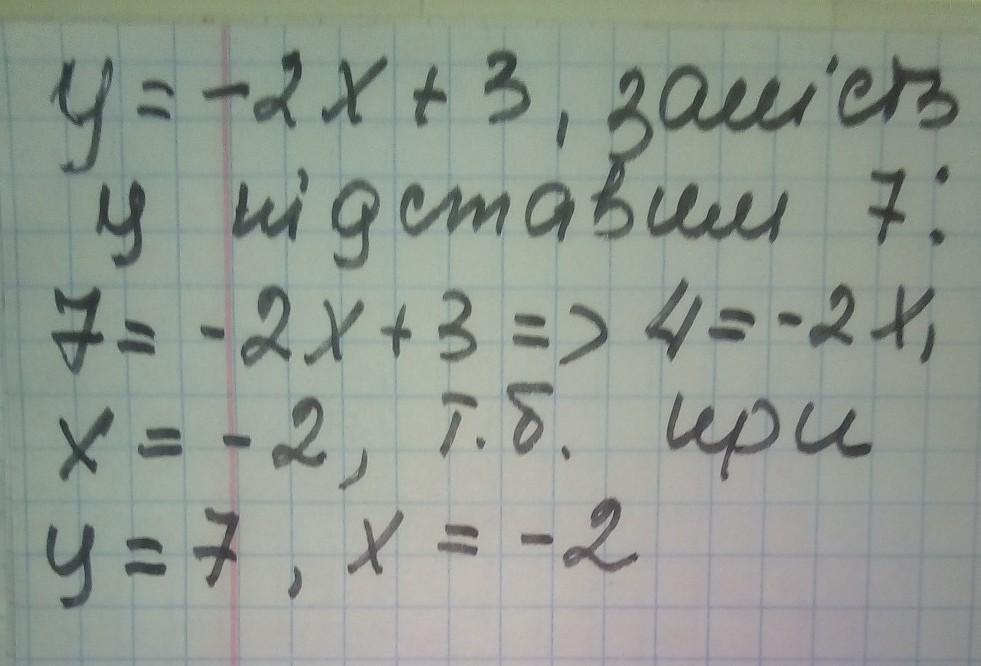 y = -2x + 3, замість
y підставим 7:
7 = -2x + 3 => 4 = -2x,
x = -2, т.б. при
y = 7, x = -2